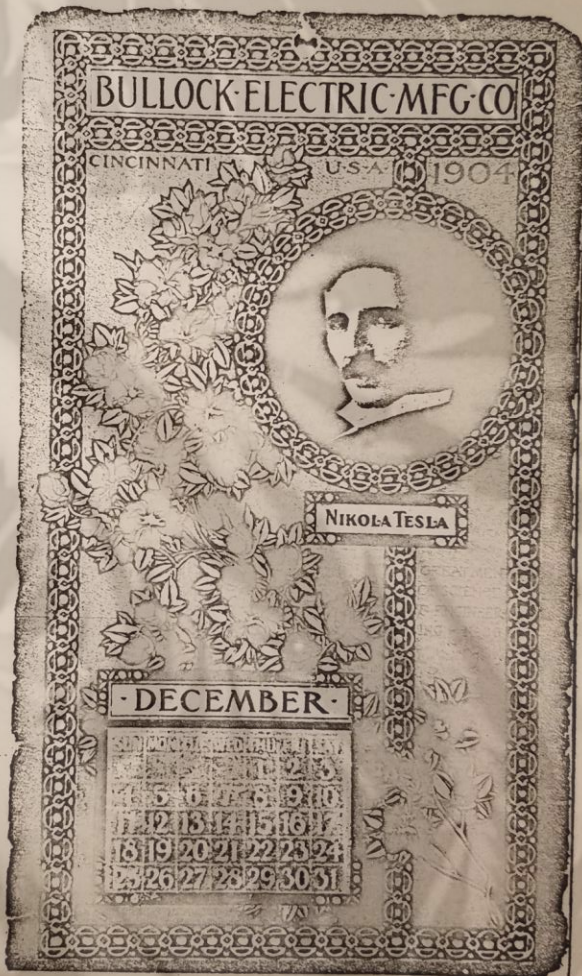 BULLOCK·ELECTRIC·MFG·CO
CINCINNATI U·S·A· 1904
NIKOLA TESLA
·DECEMBER·
1 2 3
4 5 6 7 8 9 10
11 12 13 14 15 16 17
18 19 20 21 22 23 24
25 26 27 28 29 30 31